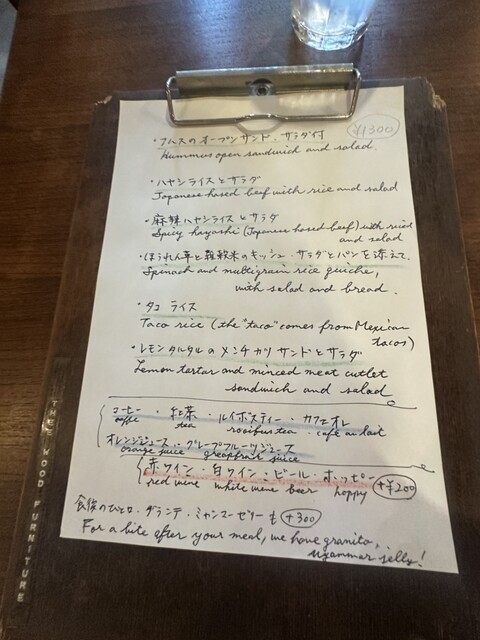 ¥1300
・フムスのオープンサンド、サラダ付
Hummus open sandwich and salad.
・ハヤシライスとサラダ
Japanese hased beef with rice and salad
・麻辣ハヤシライスとサラダ
Spicy hayashi (Japanese hased beef) with rice
and salad
・ほうれん草と雑穀米のキッシュ・サラダとパンを添えて、
Spinach and multigrain rice quiche,
with salad and bread.
・タコ ライス
Taco rice (the "taco" comes from Mexican
tacos)
・レモンタルタルのメンチカツサンドとサラダ
Lemon tartar and minced meat cutlet
sandwich and salad
コーヒー ・ 紅茶 ・ ルイボスティー ・ カフェオレ
coffee tea rooibus tea café au lait
オレンジジュース ・ グレープフルーツジュース
orange juice grapefruit juice
赤ワイン ・ 白ワイン ・ ビール ・ ホッピー
red wine white wine beer hoppy +¥200
食後のひと口・グラニテ・ミャンマーゼリーも +300
For a bite after your meal, we have granita,
myanmar jelly!
THE WOOD FURNITURE